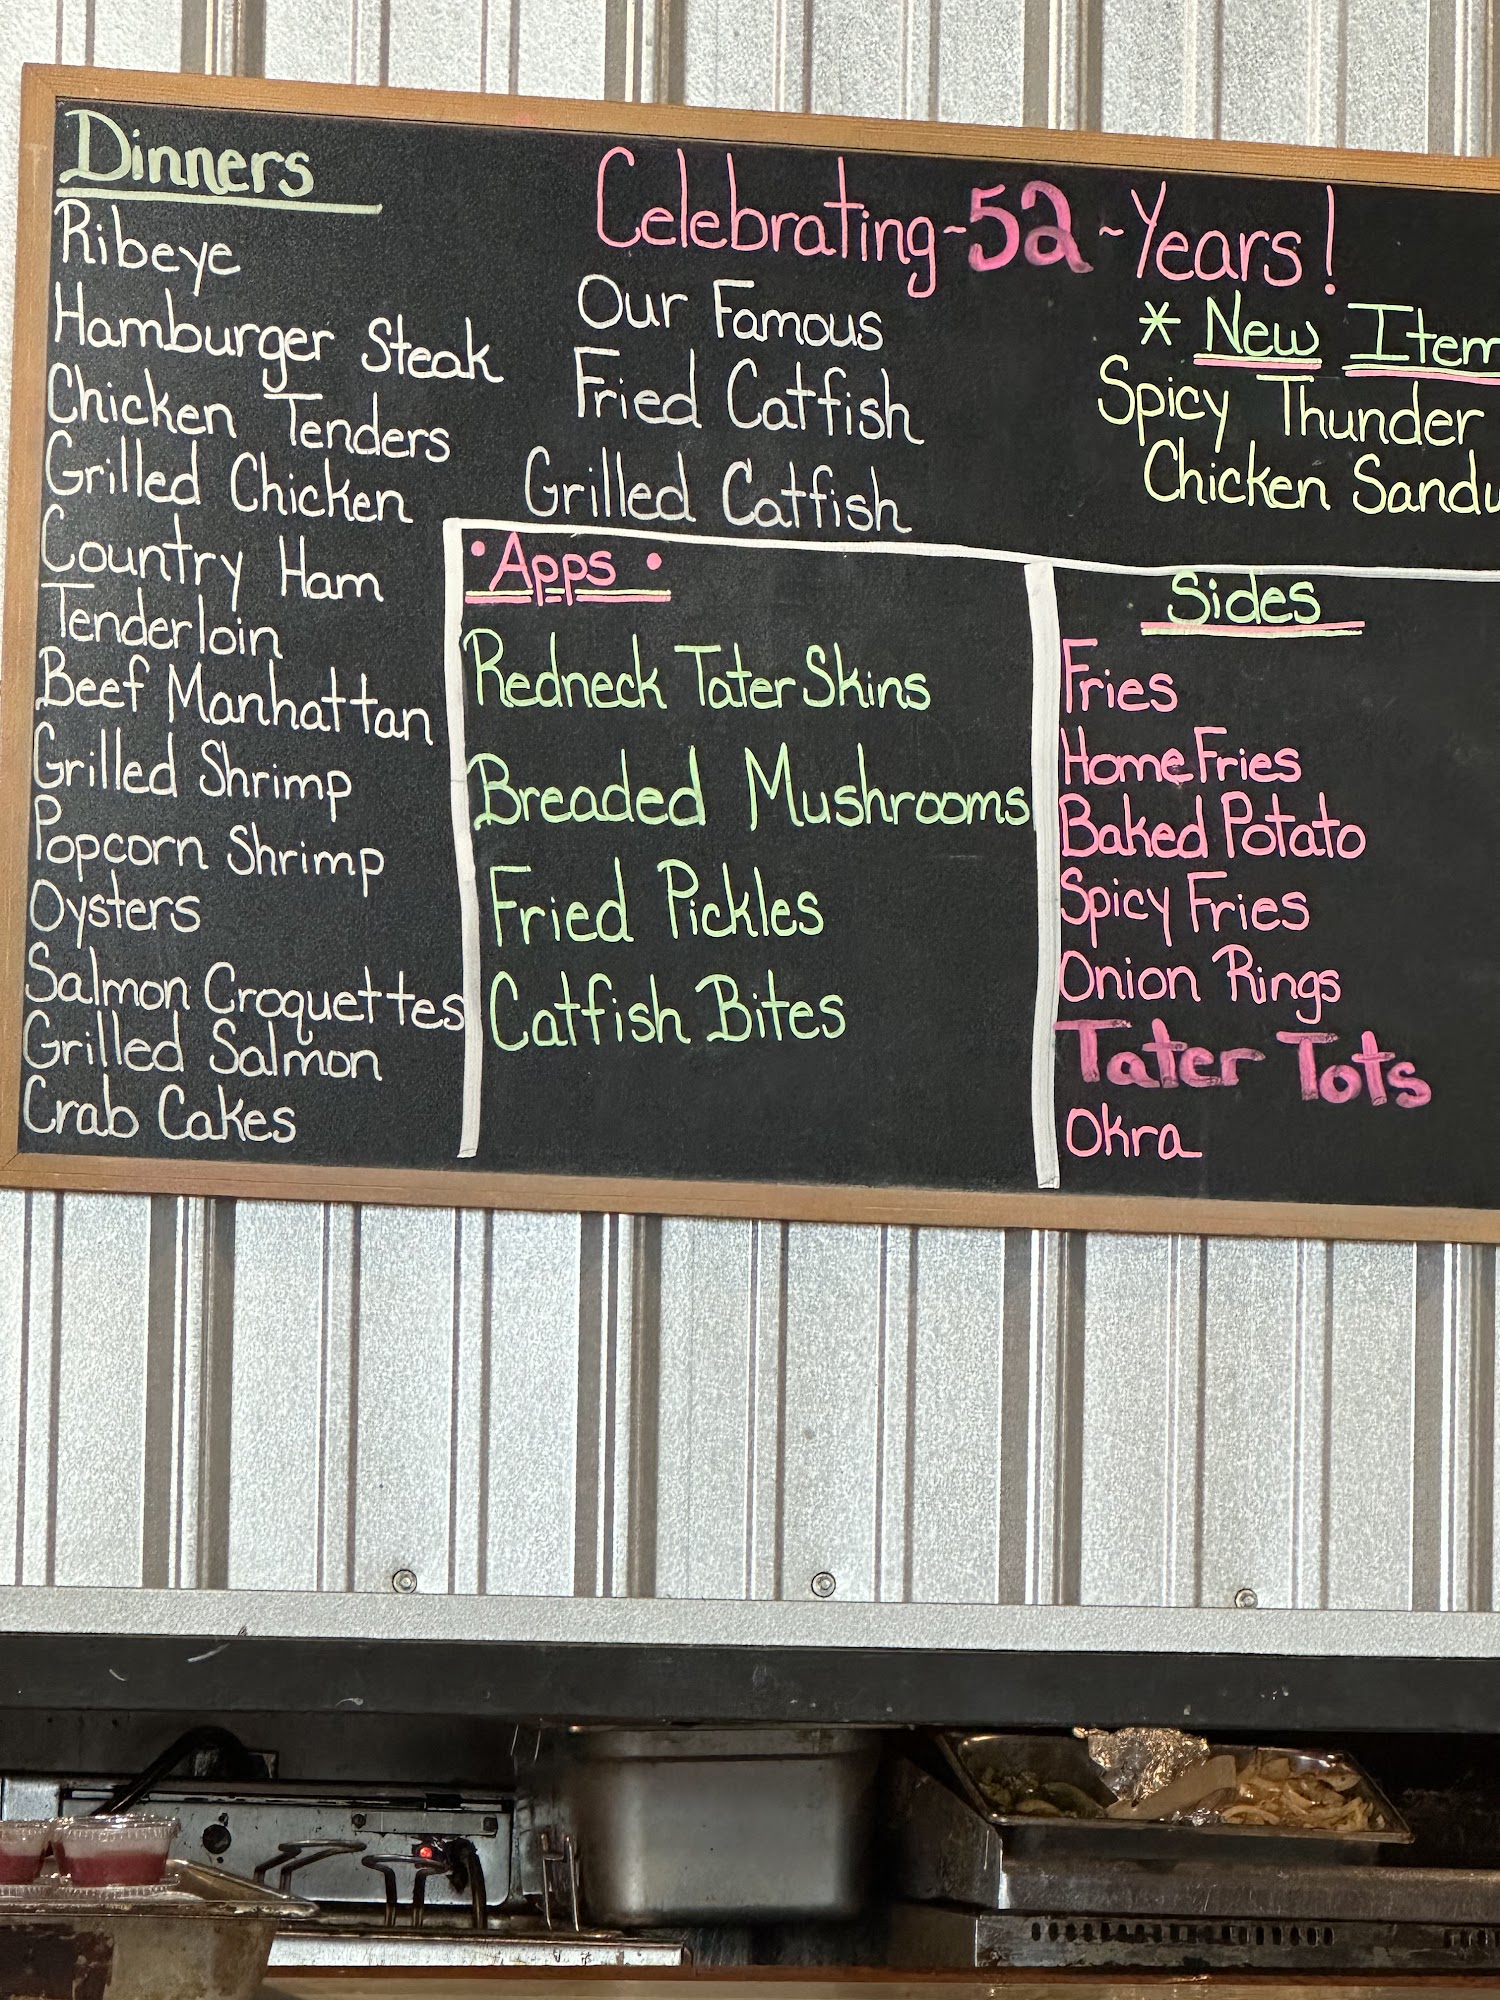 Dinners
Ribeye
Hamburger Steak
Chicken Tenders
Grilled Chicken
Country Ham
Tenderloin
Beef Manhattan
Grilled Shrimp
Popcorn Shrimp
Oysters
Salmon Croquettes
Grilled Salmon
Crab Cakes
Celebrating ~ 52 ~ Years!
Our Famous
Fried Catfish
Grilled Catfish
* New Item
Spicy Thunder
Chicken
• Apps •
Redneck Tater Skins
Breaded Mushrooms
Fried Pickles
Catfish Bites
Sides
Fries
Home Fries
Baked Potato
Spicy Fries
Onion Rings
Tater Tots
Okra